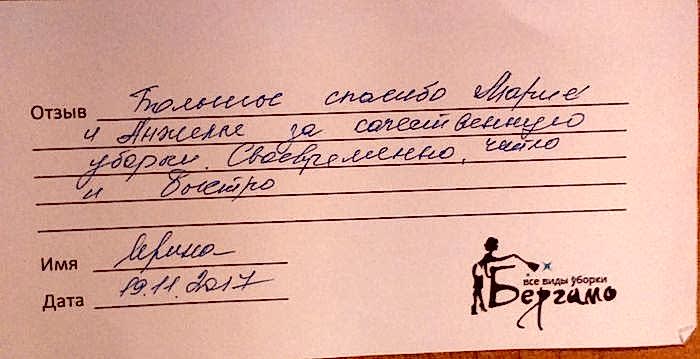 Отзыв Большое спасибо Марие
и Анжелле за качественную
уборку. Своевременно, чётко
и быстро
Имя Ирина
Дата 19.11.2017
все виды уборки
Бергамо